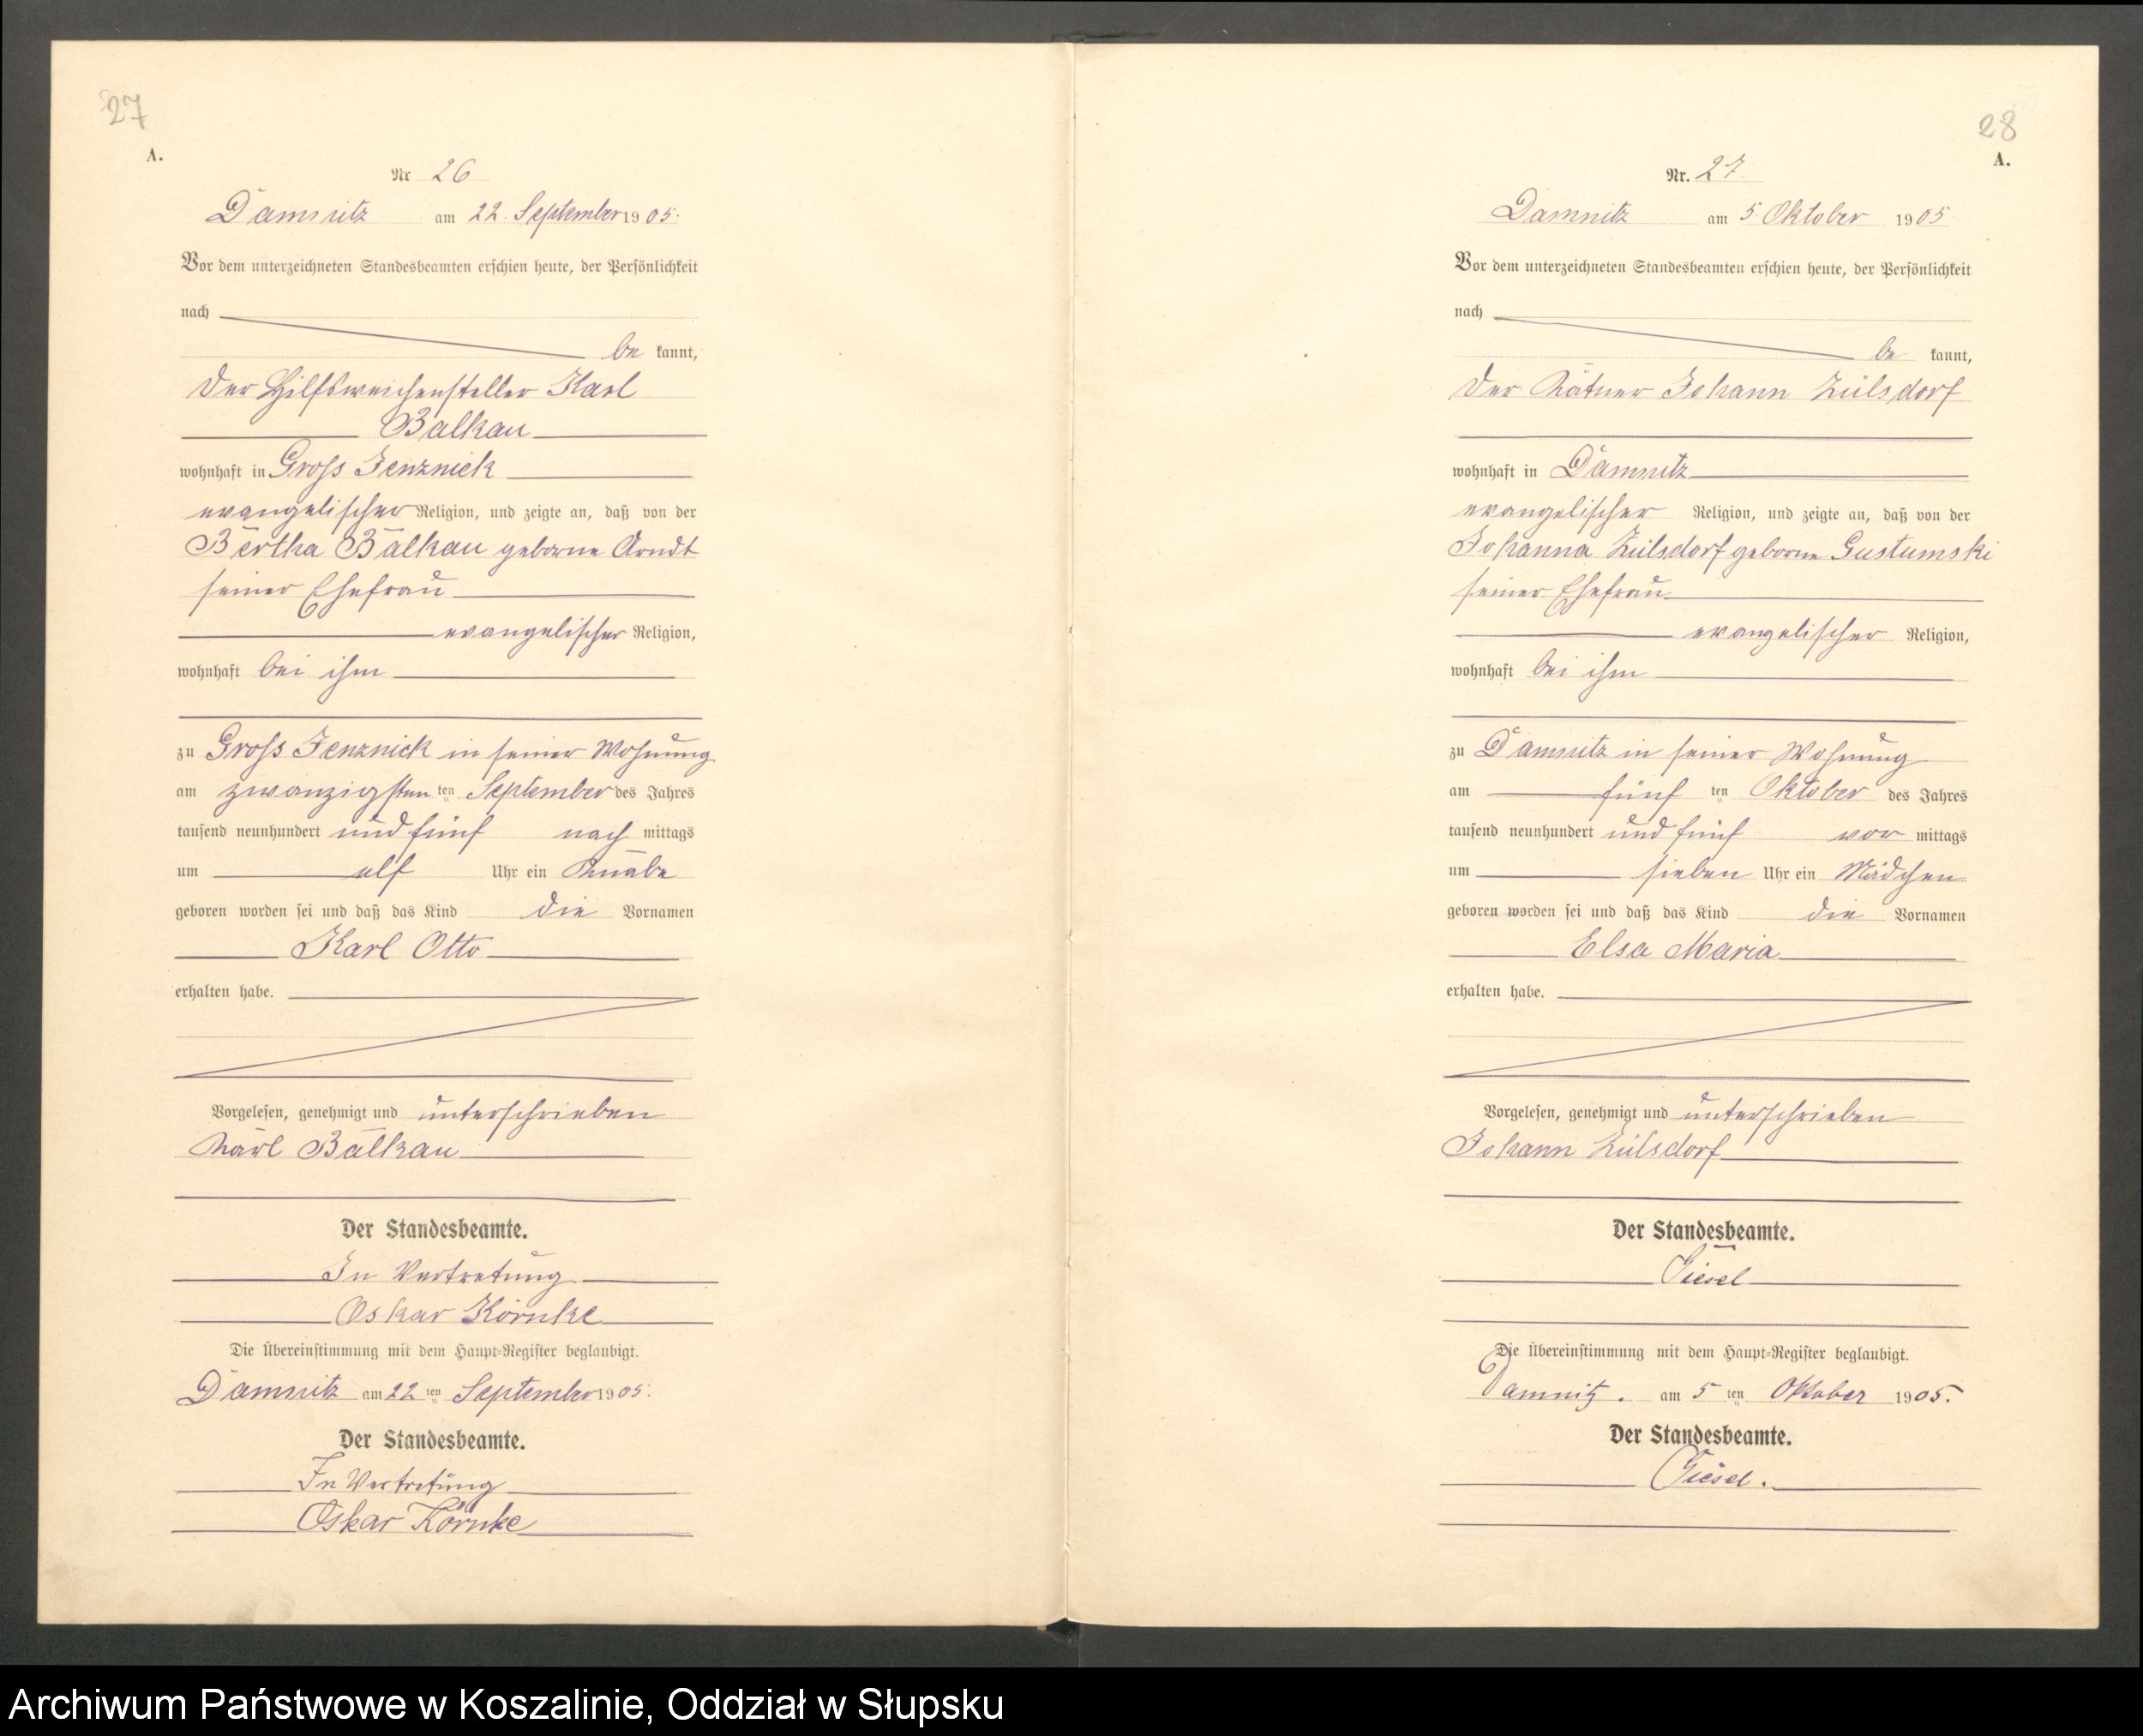 27
A.
Nr 26
Damnitz am 22. September 1905.
Vor dem unterzeichneten Standesbeamten erschien heute, der Persönlichkeit
nach
be kannt,
der Hilfsweichensteller Karl
Balkau
wohnhaft in Gross Jenznick
evangelischer Religion, und zeigte an, daß von der
Bertha Balkau geborne Arndt
seiner Ehefrau
evangelischer Religion,
wohnhaft bei ihm
zu Gross Jenznick in seiner Wohnung
am zwanzigsten ten September des Jahres
tausend neunhundert und fünf nach mittags
um elf Uhr ein Knabe
geboren worden sei und daß das Kind die Vornamen
Karl Otto
erhalten habe.
Vorgelesen, genehmigt und unterschrieben
Karl Balkau
Der Standesbeamte.
In Vertretung
Oskar Körnke
Die Übereinstimmung mit dem Haupt-Register beglaubigt.
Damnitz am 22 ten September 1905.
Der Standesbeamte.
In Vertretung
Oskar Körnke
28
A.
Nr. 27
Damnitz am 5. Oktober 1905
Vor dem unterzeichneten Standesbeamten erschien heute, der Persönlichkeit
nach
be kannt,
der Kätner Johann Zülsdorf
wohnhaft in Damnitz
evangelischer Religion, und zeigte an, daß von der
Johanna Zülsdorf geborne Gustumski
seiner Ehefrau
evangelischer Religion,
wohnhaft bei ihm
zu Damnitz in seiner Wohnung
am fünf ten Oktober des Jahres
tausend neunhundert und fünf vor mittags
um sieben Uhr ein Mädchen
geboren worden sei und daß das Kind die Vornamen
Elsa Maria
erhalten habe.
Vorgelesen, genehmigt und unterschrieben
Johann Zülsdorf
Der Standesbeamte.
Giesel
Die Übereinstimmung mit dem Haupt-Register beglaubigt.
Damnitz. am 5 ten Oktober 1905.
Der Standesbeamte.
Giesel.
Archiwum Państwowe w Koszalinie, Oddział w Słupsku